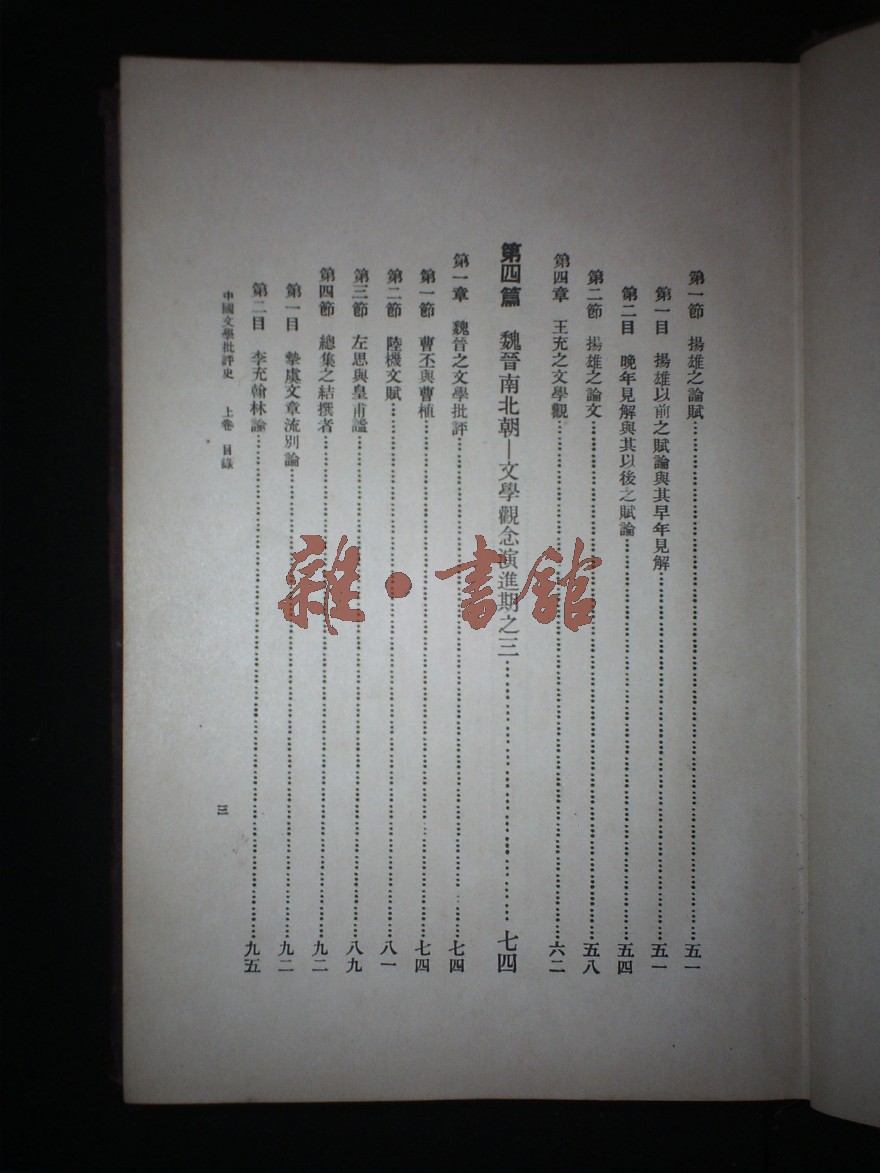 第一節 揚雄之論賦……五一
第一目 揚雄以前之賦論與其早年見解……五一
第二目 晚年見解與其以後之賦論……五四
第二節 揚雄之論文……五八
第四章 王充之文學觀……六二
第四篇 魏晉南北朝—文學觀念演進期之三……七四
第一章 魏晉之文學批評……七四
第一節 曹丕與曹植……七四
第二節 陸機文賦……八一
第三節 左思與皇甫謐……八九
第四節 總集之結撰者……九二
第一目 摯虞文章流別論……九二
第二目 李充翰林論……九五
中國文學批評史 上卷 目錄 三
雜·書館